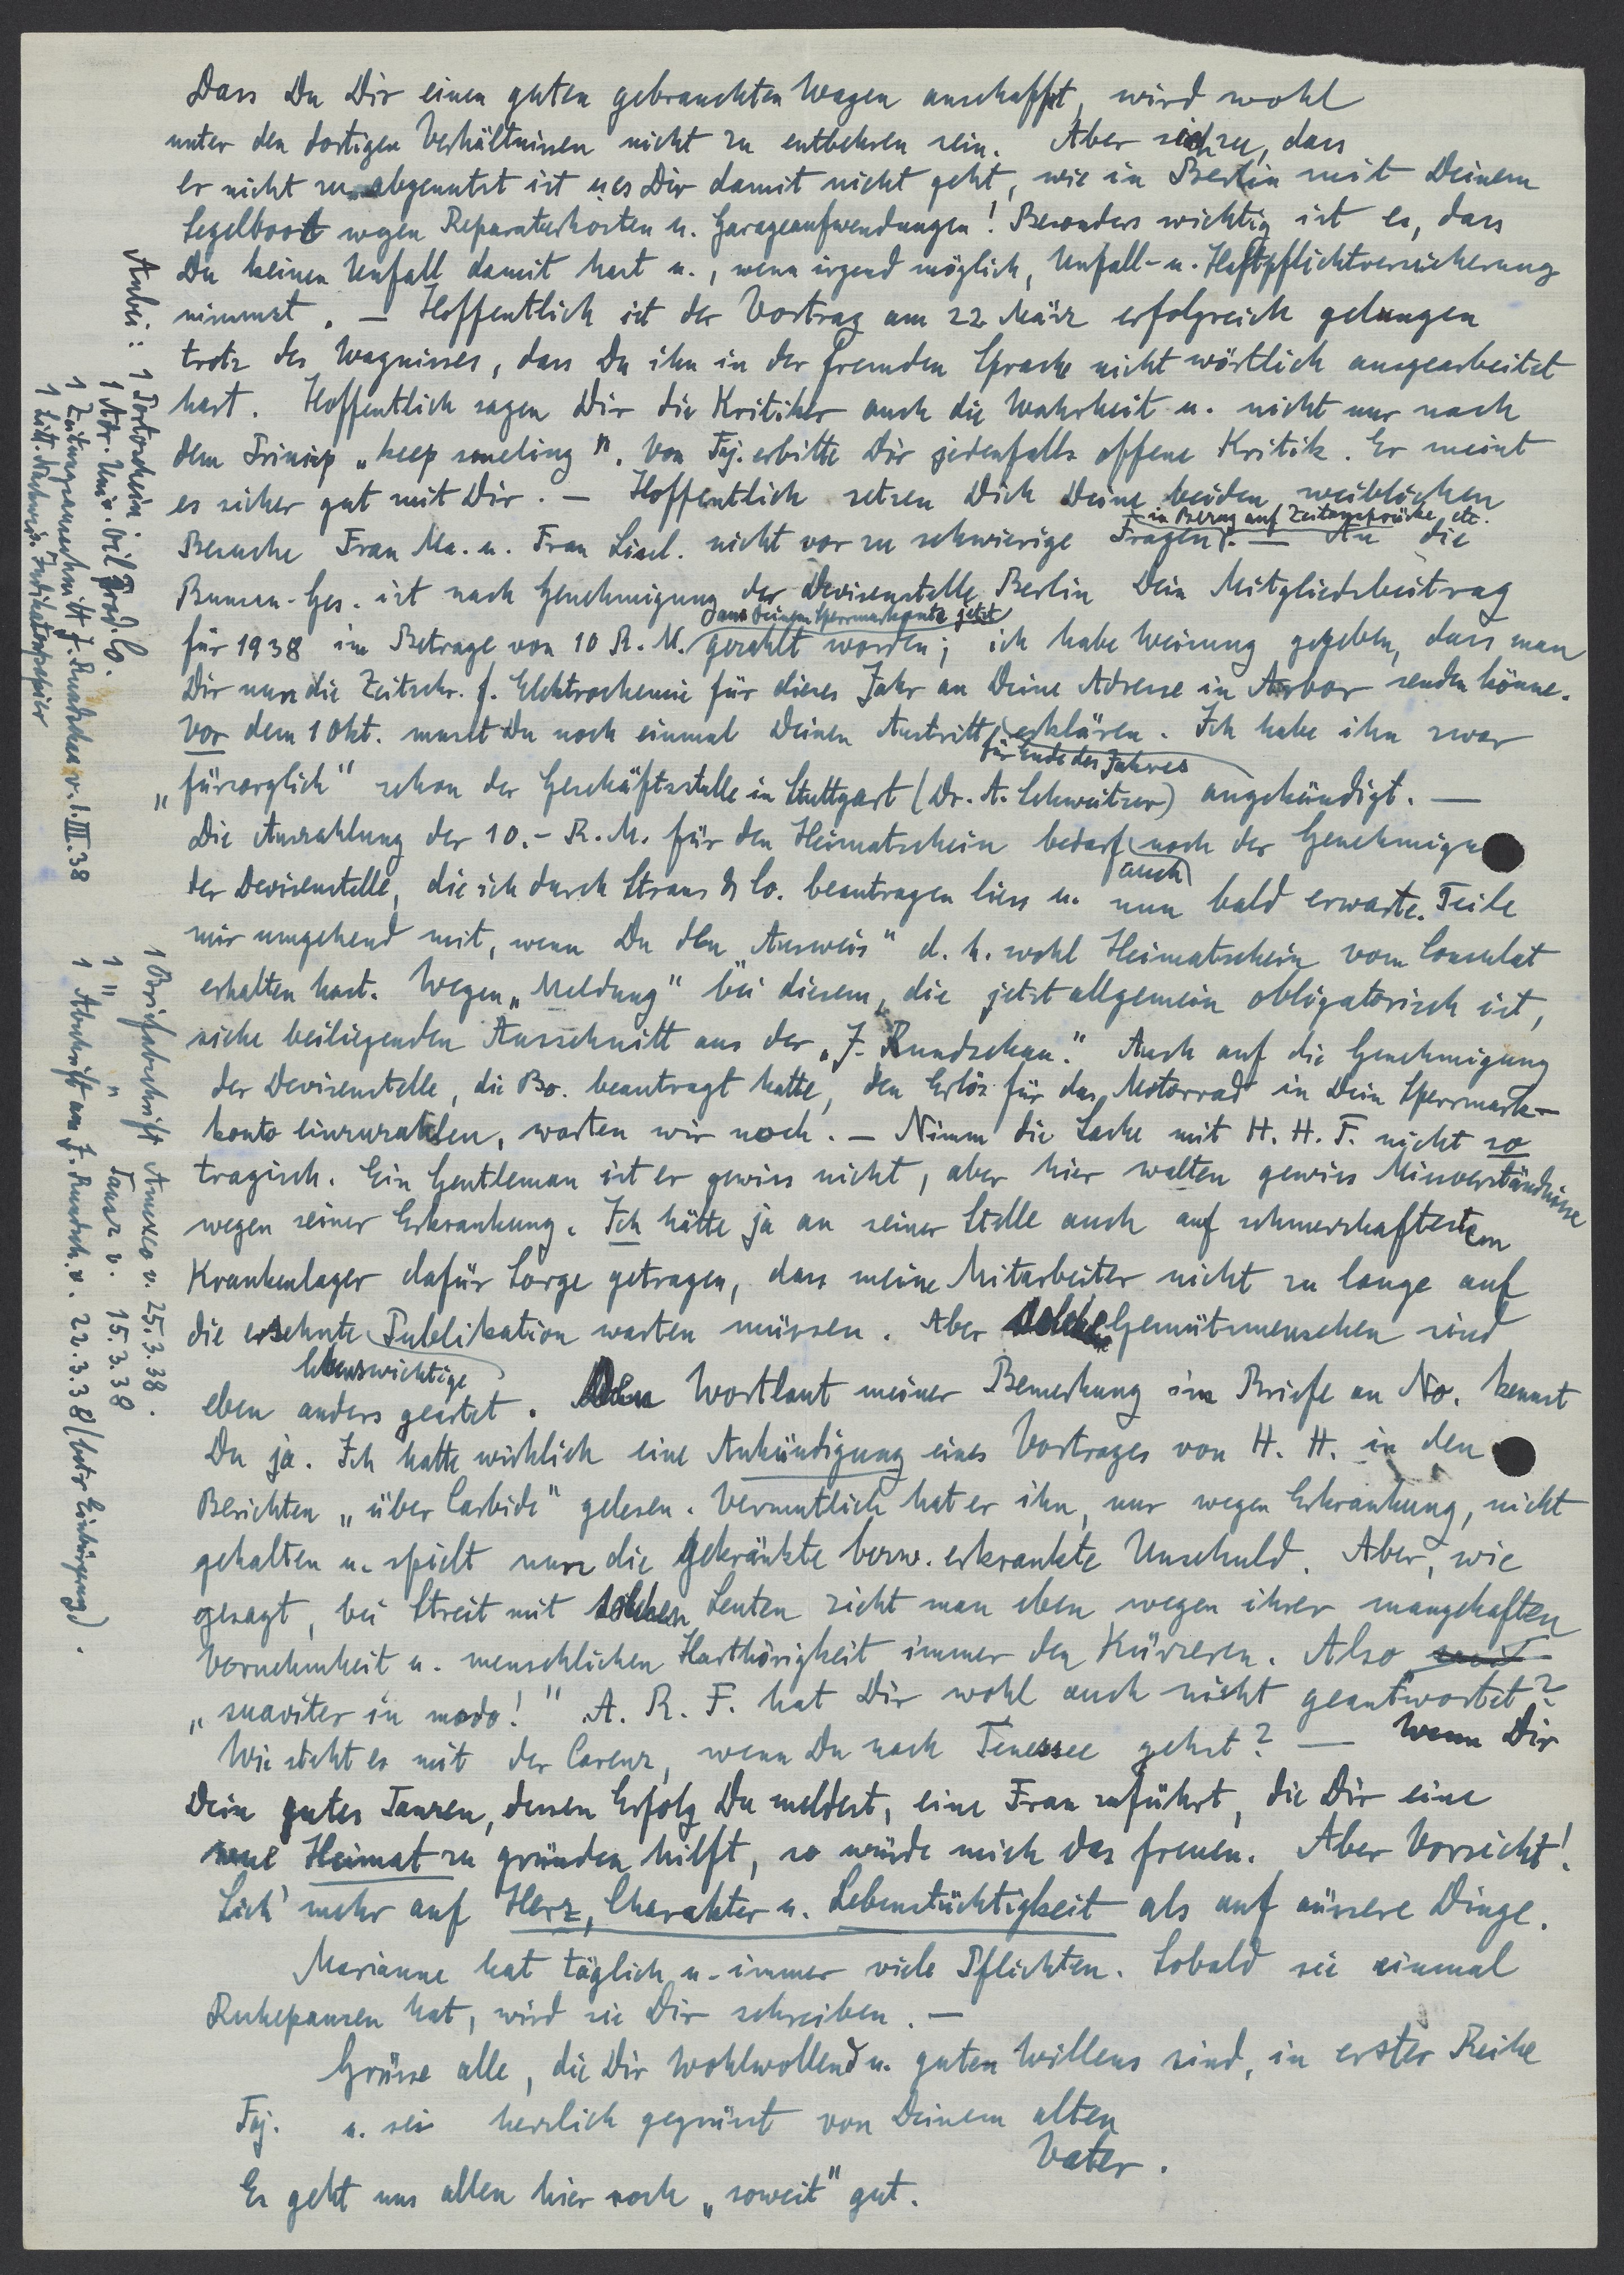 Dass Du Dir einen guten gebrauchten Wagen anschaffst, wird wohl
unter den dortigen Verhältnissen nicht zu entbehren sein. Aber sieh zu, dass
er nicht zu abgenutzt ist u. es Dir damit nicht geht, wie in Berlin mit Deinem
Segelboot wegen Reparaturkosten u. Garageaufwendungen! Besonders wichtig ist es, dass
Du keinen Unfall damit hast u., wenn irgend möglich, Unfall- u. Haftpflichtversicherung
nimmst. — Hoffentlich ist der Vortrag am 22 März erfolgreich gelungen
trotz des Wagnisses, dass Du ihn in der fremden Sprache nicht wörtlich ausgearbeitet
hast. Hoffentlich sagen Dir die Kritiker auch die Wahrheit u. nicht nur nach
dem Prinzip „keep smeling“. Von Faj. erbitte Dir jedenfalls offene Kritik. Er meint
es sicher gut mit Dir. — Hoffentlich setzen Dich Deine beiden weiblichen
in Bezug auf Zeitansprüche, etc.
Besuche Frau Ma. u. Frau Lisel. nicht vor zu schwierige Fragen. — An die
Bunsen-Ges. ist nach Genehmigung der Devisenstelle Berlin Dein Mitgliedsbeitrag
aus Deinem Sperrmarkkonto jetzt
für 1938 im Betrage von 10 R. M. gezahlt worden; ich habe Weisung gegeben, dass man
Dir nun die Zeitschr. f. Elektrochemie für dieses Jahr an Deine Adresse in Arbor senden könne.
Vor dem 1 Okt. musst Du noch einmal Deinen Austritt erklären. Ich habe ihn zwar
für Ende des Jahres
„fürsorglich“ schon der Geschäftsstelle in Stuttgart (Dr. A. Schweitzer) angekündigt. —
Die Auszahlung der 10.- R. M. für den Heimatschein bedarf noch der Genehmigun
auch
der Devisenstelle, die ich durch Straus & Co. beantragen liess u. nun bald erwarte. Teile
mir umgehend mit, wenn Du den „Ausweis“ d. h. wohl Heimatschein vom Consulat
erhalten hast. Wegen „Meldung“ bei diesem, die jetzt allgemein obligatorisch ist,
siehe beiliegenden Ausschnitt aus der „J. Rundschau.“ Auch auf die Genehmigung
der Devisenstelle, die Bo. beantragt hatte, den Erlös für das Motorrad in Dein Sperrmark-
konto einzuzahlen, warten wir noch. — Nimm die Sache mit H. H. F. nicht so
tragisch. Ein Gentleman ist er gewiss nicht, aber hier walten gewiss Missverständnisse
wegen seiner Erkrankung. Ich hätte ja an seiner Stelle auch auf schmerzhaftestem
Krankenlager dafür Sorge getragen, dass meine Mitarbeiter nicht zu lange auf
die ersehnte Publikation warten müssen. Aber solche Gemütsmenschen sind
lebenswichtige
eben anders geartet. Den Wortlaut meiner Bemerkung im Briefe an No. kennst
Du ja. Ich hatte wirklich eine Ankündigung eines Vortrages von H. H. in den
Berichten „über Carbide“ gelesen. Vermutlich hat er ihn, nur wegen Erkrankung, nicht
gehalten u. spielt nun die gekränkte bezw. erkrankte Unschuld. Aber, wie
gesagt, bei Streit mit solchen Leuten zieht man eben wegen ihrer mangelhaften
Vornehmheit u. menschlichen Harthörigkeit immer den Kürzeren. Also
„suaviter in modo!“ A. R. F. hat Dir wohl auch nicht geantwortet?
Wie steht es mit der Carenz, wenn Du nach Tenessee gehst? — Wenn Dir
Dein gutes Tanzen, dessen Erfolg Du meldest, eine Frau zuführt, die Dir eine
neue Heimat zu gründen hilft, so würde mich das freuen. Aber Vorsicht!
Sieh' mehr auf Herz, Charakter u. Lebenstüchtigkeit als auf äussere Dinge.
Marianne hat täglich u. immer viele Pflichten. Sobald sie einmal
Ruhepausen hat, wird sie Dir schreiben. —
Grüsse alle, die Dir Wohlwollend u. guten Willens sind, in erster Reihe
Faj. u. sei herzlich gegrüsst von Deinem alten
Vater.
Es geht uns allen hier noch „soweit“ gut.
Anbei: 1 Portoschein
1 Adr. Univ. Oil Prod. Co.
1 Zeitungsausschnitt J. Rundschau v. 1. III. 38
1 Litt. Nachweis Indikatorpapier
1 Briefabschrift Amexco v. 25.3.38.
1 " " Tanz v. 15.3.38
1 Abschrift aus J. Rundsch. v. 22.3.38 (betr Einbürgerung).